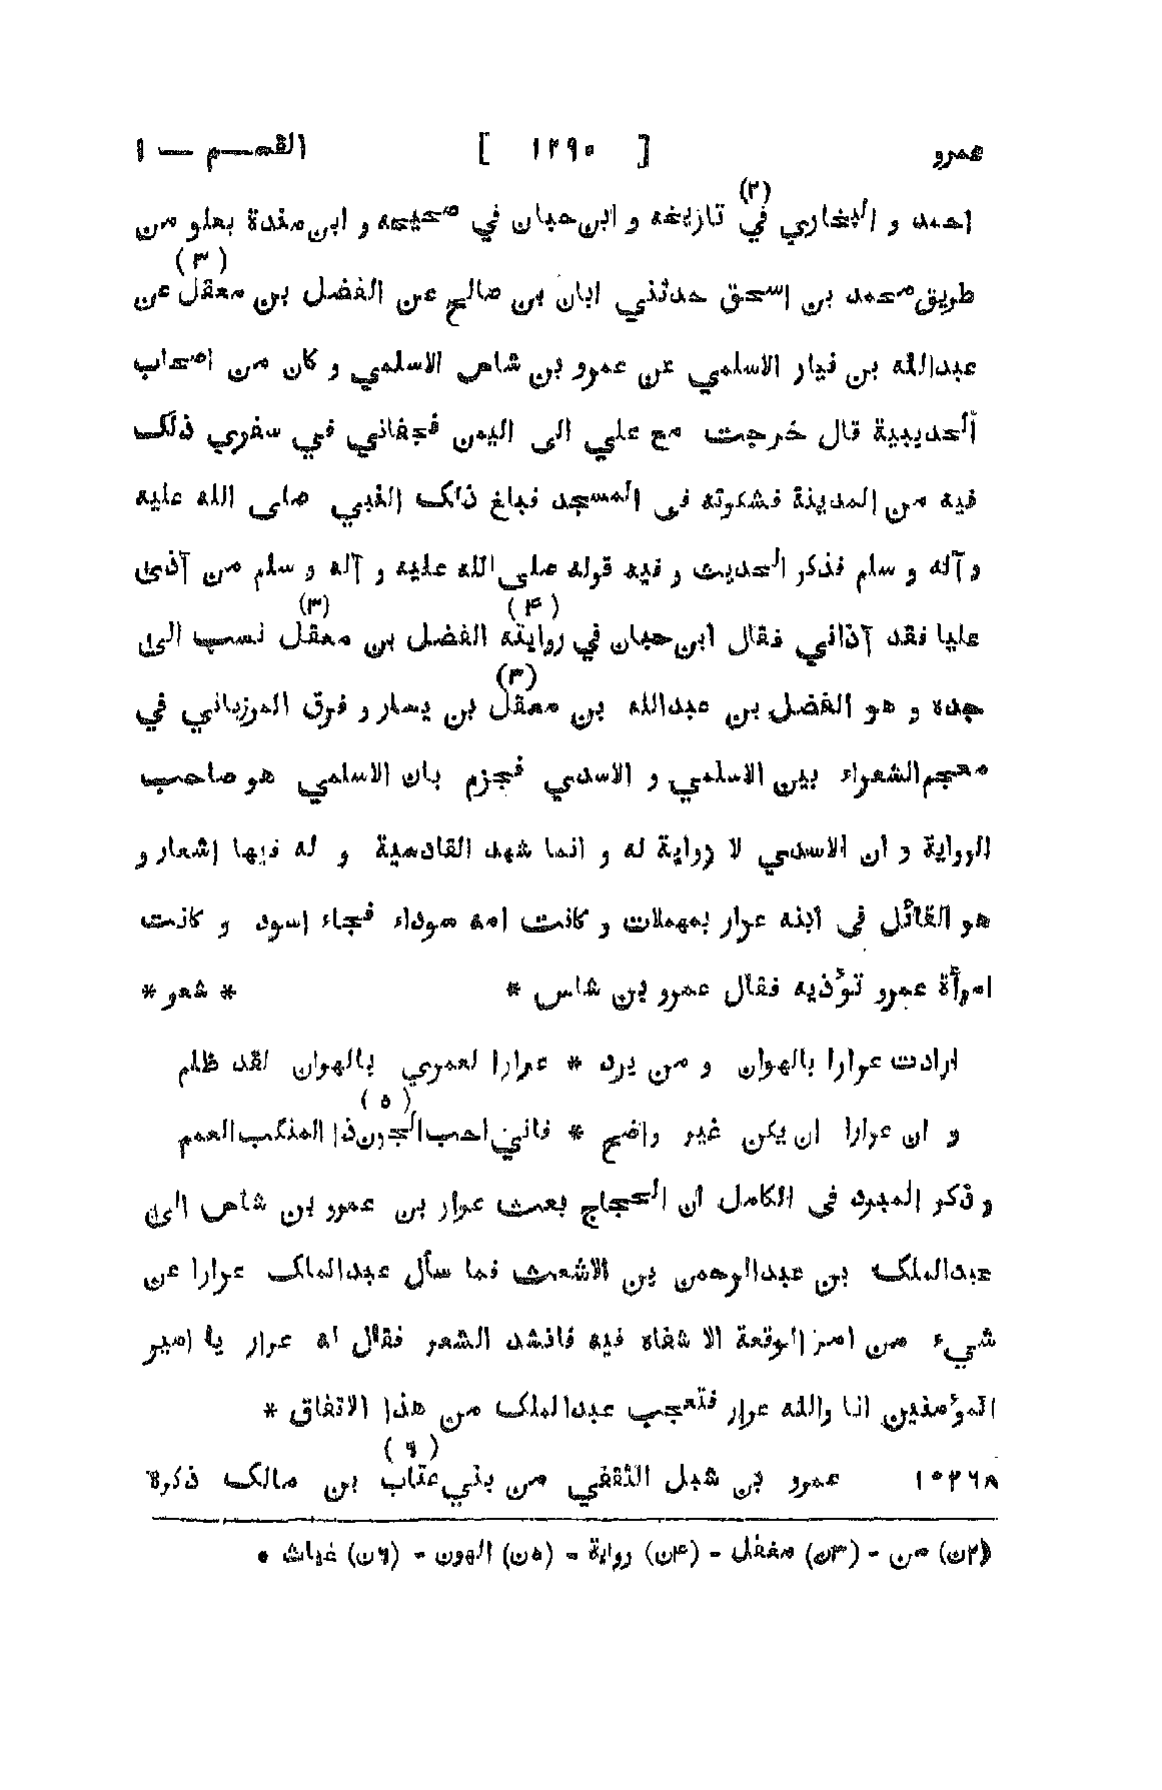 عمرو [ ١٢٩٠ ] القسم — ١
احمد و البخاري في (٢) تاريخه و ابن حبان في صحيحه و ابن مندة بعلو من
طريق محمد بن اسحق حدثني ابان بن صالح عن الفضل بن معقل (٣) عن
عبدالله بن نيار الاسلمي عن عمرو بن شاس الاسلمي و كان من اصحاب
الحديبية قال خرجت مع علي الى اليمن فجفاني في سفري ذلک
فيه من المدينة فشكوته فى المسجد فبلغ ذلک النبي صلى الله عليه
و آله و سلم فذكر الحديث و فيه قوله صلى الله عليه و آله و سلم من آذى
عليا فقد آذاني فقال ابن حبان في روايته (۴) الفضل بن معقل (٣) نسب الى
جده و هو الفضل بن عبدالله بن معقل (٣) بن يسار و فرق المرزباني في
معجم الشعراء بين الاسلمي و الاسدي فجزم بان الاسلمي هو صاحب
الرواية و ان الاسدي لا رواية له و انما شهد القادسية و له فيها اشعار و
هو القائل فى ابنه عرار بمهملات و كانت امه سوداء فجاء اسود و كانت
امرأة عمرو تؤذيه فقال عمرو بن شاس * * شعر *
ارادت عرارا بالهوان و من يرد * عرارا لعمري بالهوان لقد ظلم
و ان عرارا ان يكن غير واضح * فاني احب الجون (٥) ذا المنكب العمم
و ذكر المبرد فى الكامل ان الحجاج بعث عرار بن عمرو بن شاس الى
عبدالملک بن عبدالرحمن بن الاشعث فما سأل عبدالملک عرارا عن
شيء من امر الوقعة الا شفاه فيه فانشد الشعر فقال له عرار يا امير
المؤمنين انا والله عرار فتعجب عبدالملک من هذا الاتفاق *
١٠٢٦٨ عمرو بن شبل الثقفي من بني عتاب (٦) بن مالک ذكره
(٢ن) من - (٣ن) مغفل - (۴ن) رواية - (٥ن) الهون - (٦ن) غياث •